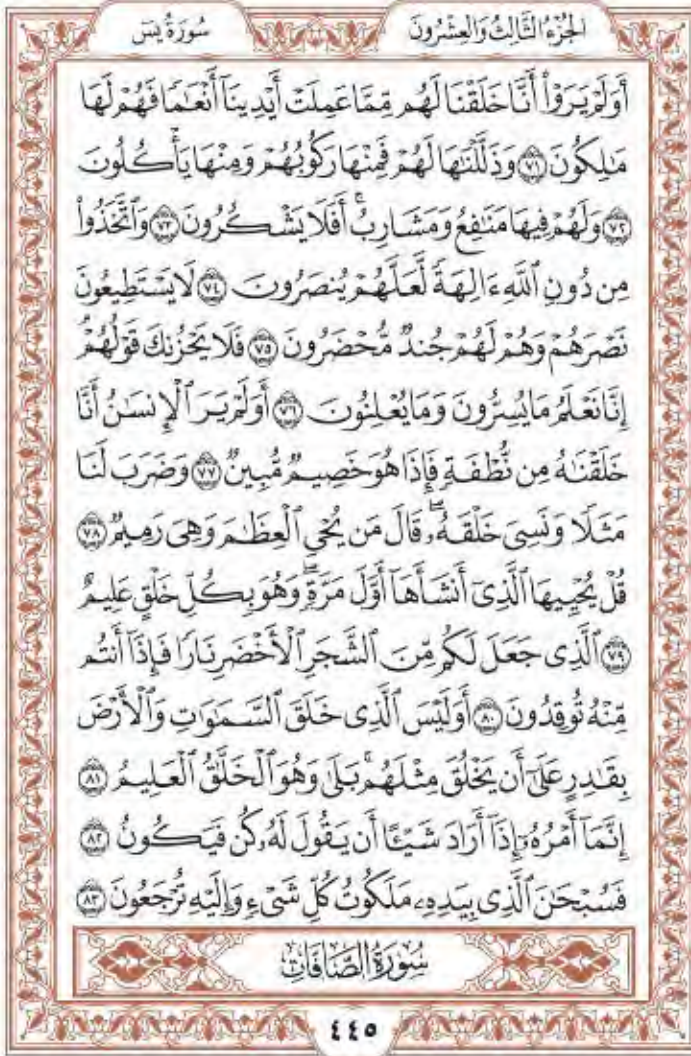 الجُزْءُ الثَّالِثُ وَالعِشْرُونَ
سُورَةُ يسٓ
أَوَلَمْ يَرَوْاْ أَنَّا خَلَقْنَا لَهُم مِّمَّا عَمِلَتْ أَيْدِينَآ أَنْعَٰمٗا فَهُمْ لَهَا
مَٰلِكُونَ ٧١ وَذَلَّلْنَٰهَا لَهُمْ فَمِنْهَا رَكُوبُهُمْ وَمِنْهَا يَأْكُلُونَ
٧٢ وَلَهُمْ فِيهَا مَنَٰفِعُ وَمَشَارِبُۚ أَفَلَا يَشْكُرُونَ ٧٣ وَٱتَّخَذُواْ
مِن دُونِ ٱللَّهِ ءَالِهَةٗ لَّعَلَّهُمْ يُنصَرُونَ ٧٤ لَا يَسْتَطِيعُونَ
نَصْرَهُمْ وَهُمْ لَهُمْ جُندٞ مُّحْضَرُونَ ٧٥ فَلَا يَحْزُنكَ قَوْلُهُمْۘ
إِنَّا نَعْلَمُ مَا يُسِرُّونَ وَمَا يُعْلِنُونَ ٧٦ أَوَلَمْ يَرَ ٱلْإِنسَٰنُ أَنَّا
خَلَقْنَٰهُ مِن نُّطْفَةٖ فَإِذَا هُوَ خَصِيمٞ مُّبِينٞ ٧٧ وَضَرَبَ لَنَا
مَثَلٗا وَنَسِيَ خَلْقَهُۥۖ قَالَ مَن يُحْيِ ٱلْعِظَٰمَ وَهِيَ رَمِيمٞ ٧٨
قُلْ يُحْيِيهَا ٱلَّذِيٓ أَنشَأَهَآ أَوَّلَ مَرَّةٖۖ وَهُوَ بِكُلِّ خَلْقٍ عَلِيمٌ
٧٩ ٱلَّذِي جَعَلَ لَكُم مِّنَ ٱلشَّجَرِ ٱلْأَخْضَرِ نَارٗا فَإِذَآ أَنتُم
مِّنْهُ تُوقِدُونَ ٨٠ أَوَلَيْسَ ٱلَّذِي خَلَقَ ٱلسَّمَٰوَٰتِ وَٱلْأَرْضَ
بِقَٰدِرٍ عَلَىٰٓ أَن يَخْلُقَ مِثْلَهُمۚ بَلَىٰ وَهُوَ ٱلْخَلَّٰقُ ٱلْعَلِيمُ ٨١
إِنَّمَآ أَمْرُهُۥٓ إِذَآ أَرَادَ شَيْـًٔا أَن يَقُولَ لَهُۥ كُن فَيَكُونُ ٨٢
فَسُبْحَٰنَ ٱلَّذِي بِيَدِهِۦ مَلَكُوتُ كُلِّ شَيْءٖ وَإِلَيْهِ تُرْجَعُونَ ٨٣
سُورَةُ الصَّافَاتِ
٤٤٥